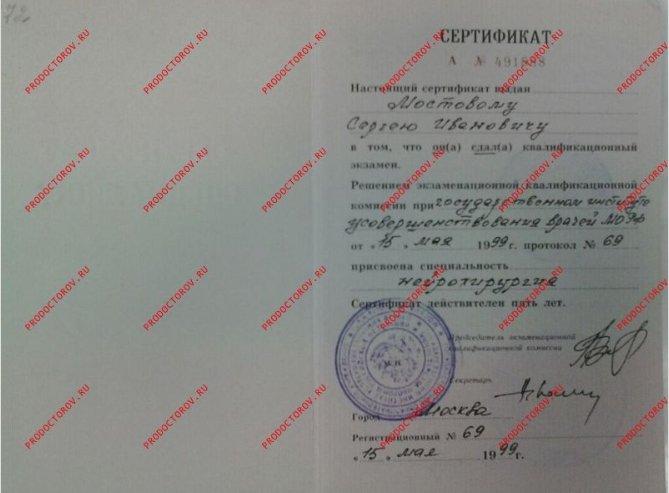 72
СЕРТИФИКАТ
А № 491888
Настоящий сертификат выдан
Мостовому
Сергею Ивановичу
в том, что он(а) сдал(а) квалификационный
экзамен.
Решением экзаменационной квалификационной
комиссии при государственном институте
усовершенствования врачей МО РФ
от «15» мая 1999 г. протокол № 69
присвоена специальность
нейрохирургия
Сертификат действителен пять лет.
Председатель экзаменационной
квалификационной комиссии
Секретарь
Город Москва
Регистрационный № 69
«15» мая 1999 г.
PRODOCTOROV.RU